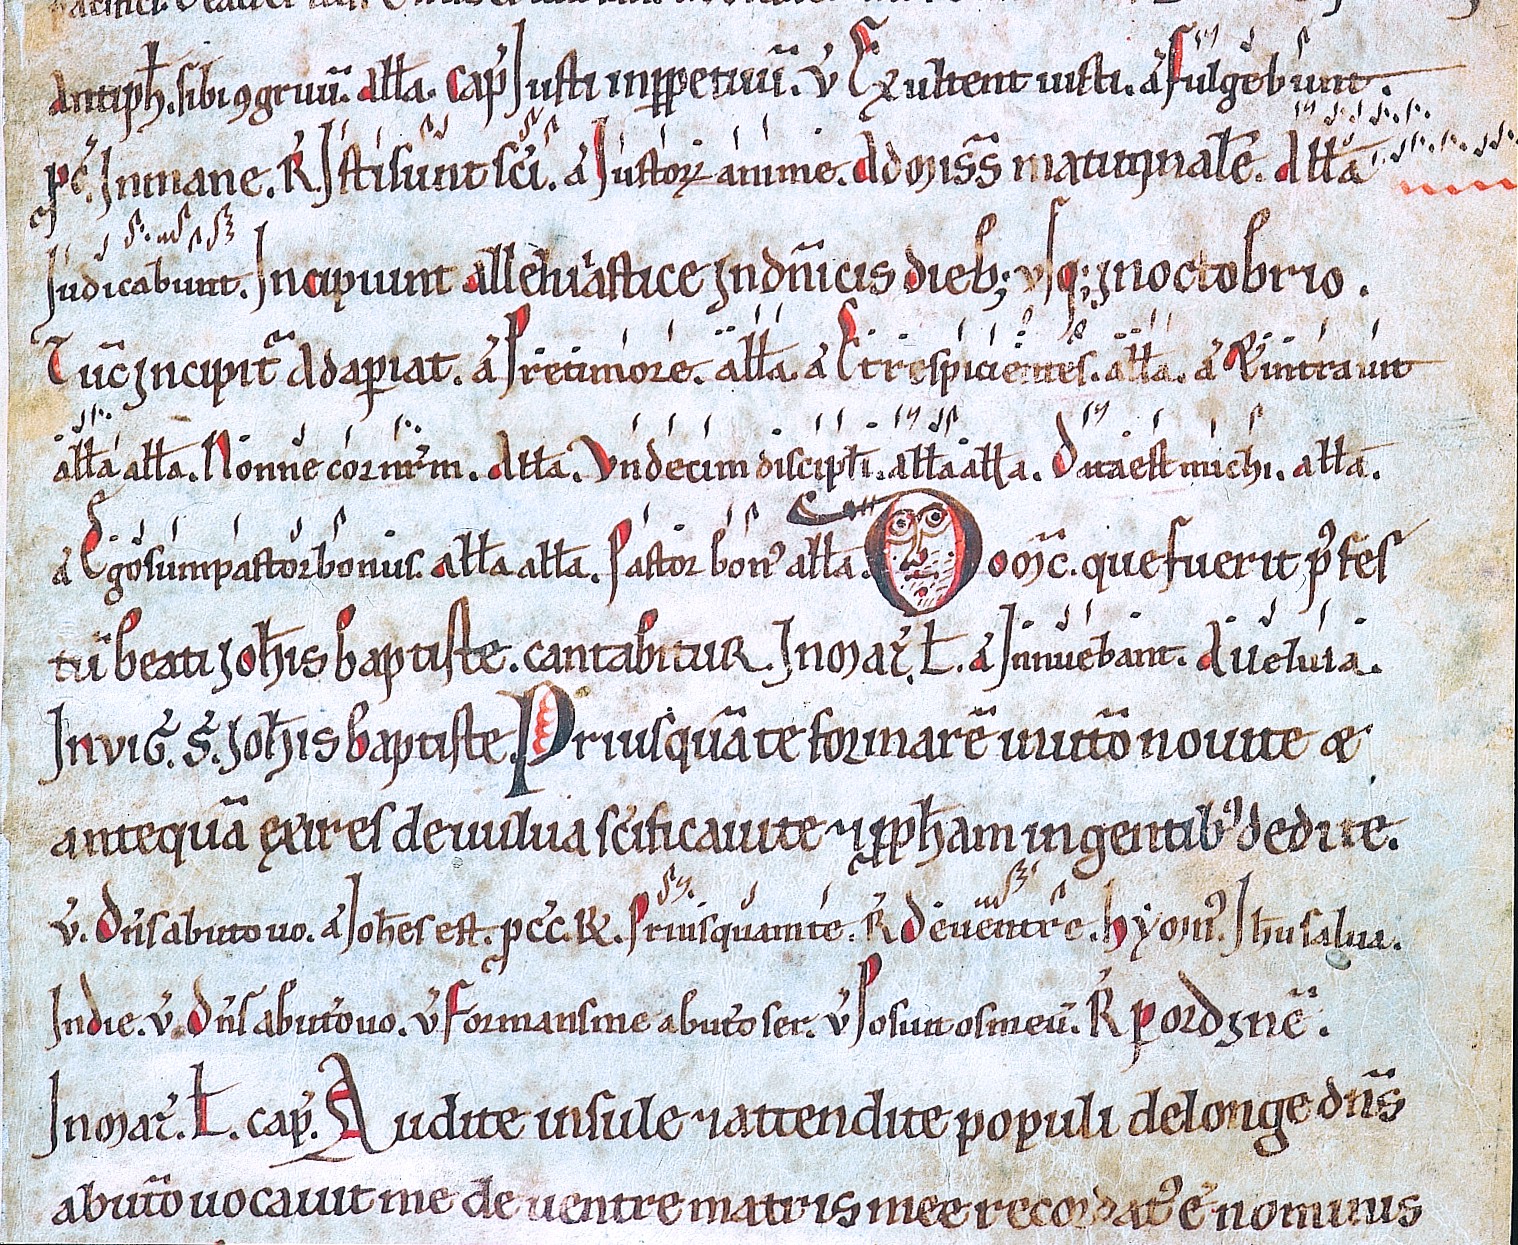 antiph̄. sibi ꝯgruū. all̄a. Cap̄ Iusti inꝑpetuū. v̄ Exultent iusti. a᷎ Fulgebunt.
pc̄. In mane. R̄ Isti sunt sc̄i. a᷎ Iustoꝝ anime. Ad missā matutinalē. All̄a
Iudicabunt. Incipiunt alleluiastice in dn̄icis dieb; usq; in octobrio.
Tūc incipit̄ Adaperiat. a᷎ Pre timore. all̄a. a᷎ Et respicientes. all̄a. a᷎ Et intrauit
all̄a all̄a. Nonne cor nr̄m. All̄a. Vndecim discipl̄i. all̄a all̄a. Data est michi. all̄a.
a᷎ Ego sum pastor bonus. all̄a all̄a. Pastor bon᷒ all̄a. Domc̄. que fuerit p᷒ fes
tū beati ioh̄is baptiste. cantabitur. In mat̄. L̄. a᷎ Innuebant. Aeuluia.
In viḡ. S̄. ioh̄is baptiste. Priusquā te formarē in utō noui te &
antequā exires de uulua sc̄ificaui te ⁊ ꝓph̄am in gentib᷒ dedi te.
v̄. Dn̄s ab uto uo. a᷎ Ioh̄es est. pc̄c. R̄R̄. Priusquam te. R̄ De uentre. hyom̄. Ih̄u salua.
In die. v̄. Dn̄s ab utō uo. v̄ Formans me ab utō ser. v̄ Posuit os meū. R̄ ꝑ ordinē.
In mat̄. L̄. cap̄. Audite insule ⁊ attendite populi de longe dn̄s
ab utō uocauit me de uentre matris mee recordat᷒ ē nominis